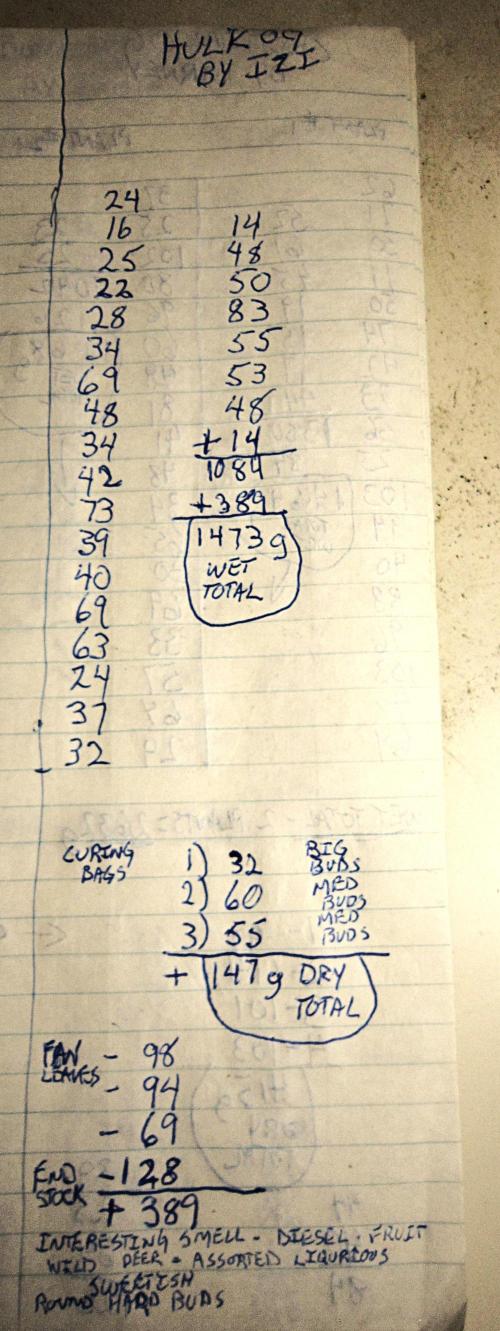 HULK 09
BY IZI
24
16
25
22
28
34
69
48
34
42
73
39
40
69
63
24
37
32
14
48
50
83
55
53
48
+ 14
1084
+ 389
1473 g
WET
TOTAL
CURING
BAGS
1) 32 BIG BUDS
2) 60 MED BUDS
3) 55 MED BUDS
+ 147 g DRY
TOTAL
FAN LEAVES - 98
- 94
- 69
END STOCK - 128
+ 389
INTERESTING SMELL - DIESEL - FRUIT
WILD DEER - ASSORTED LIQURIOUS
SWEETISH
ROUND HARD BUDS